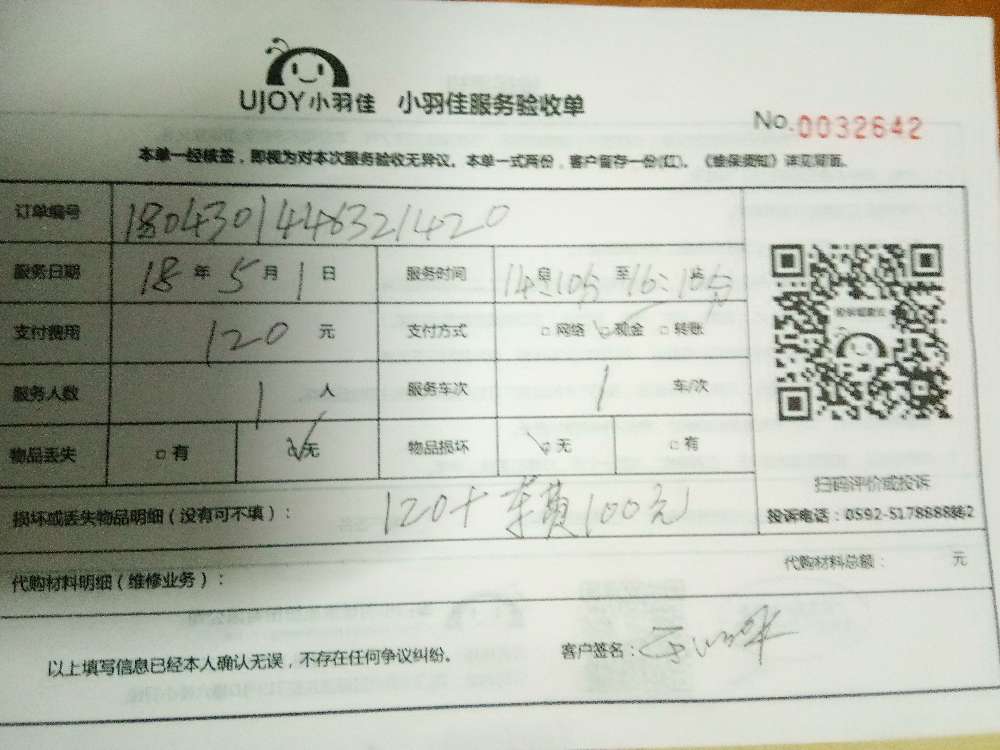 UJOY小羽佳 小羽佳服务验收单
No.0032642
本单一经核签，即视为对本次服务验收无异议。本单一式两份，客户留存一份(红)。《维保须知》详见背面。
订单编号 1804301446321420
服务日期 18年5月1日 服务时间 14:10分至16:16分
支付费用 120元 支付方式 □网络 ☑现金 □转账
服务人数 1人 服务车次 1车/次
物品丢失 □有 ☑无 物品损坏 ☑无 □有
扫码评价或投诉
投诉电话：0592-5178888862
损坏或丢失物品明细（没有可不填）： 120+车费100元
代购材料明细（维修业务）： 代购材料总额： 元
以上填写信息已经本人确认无误，不存在任何争议纠纷。 客户签名：